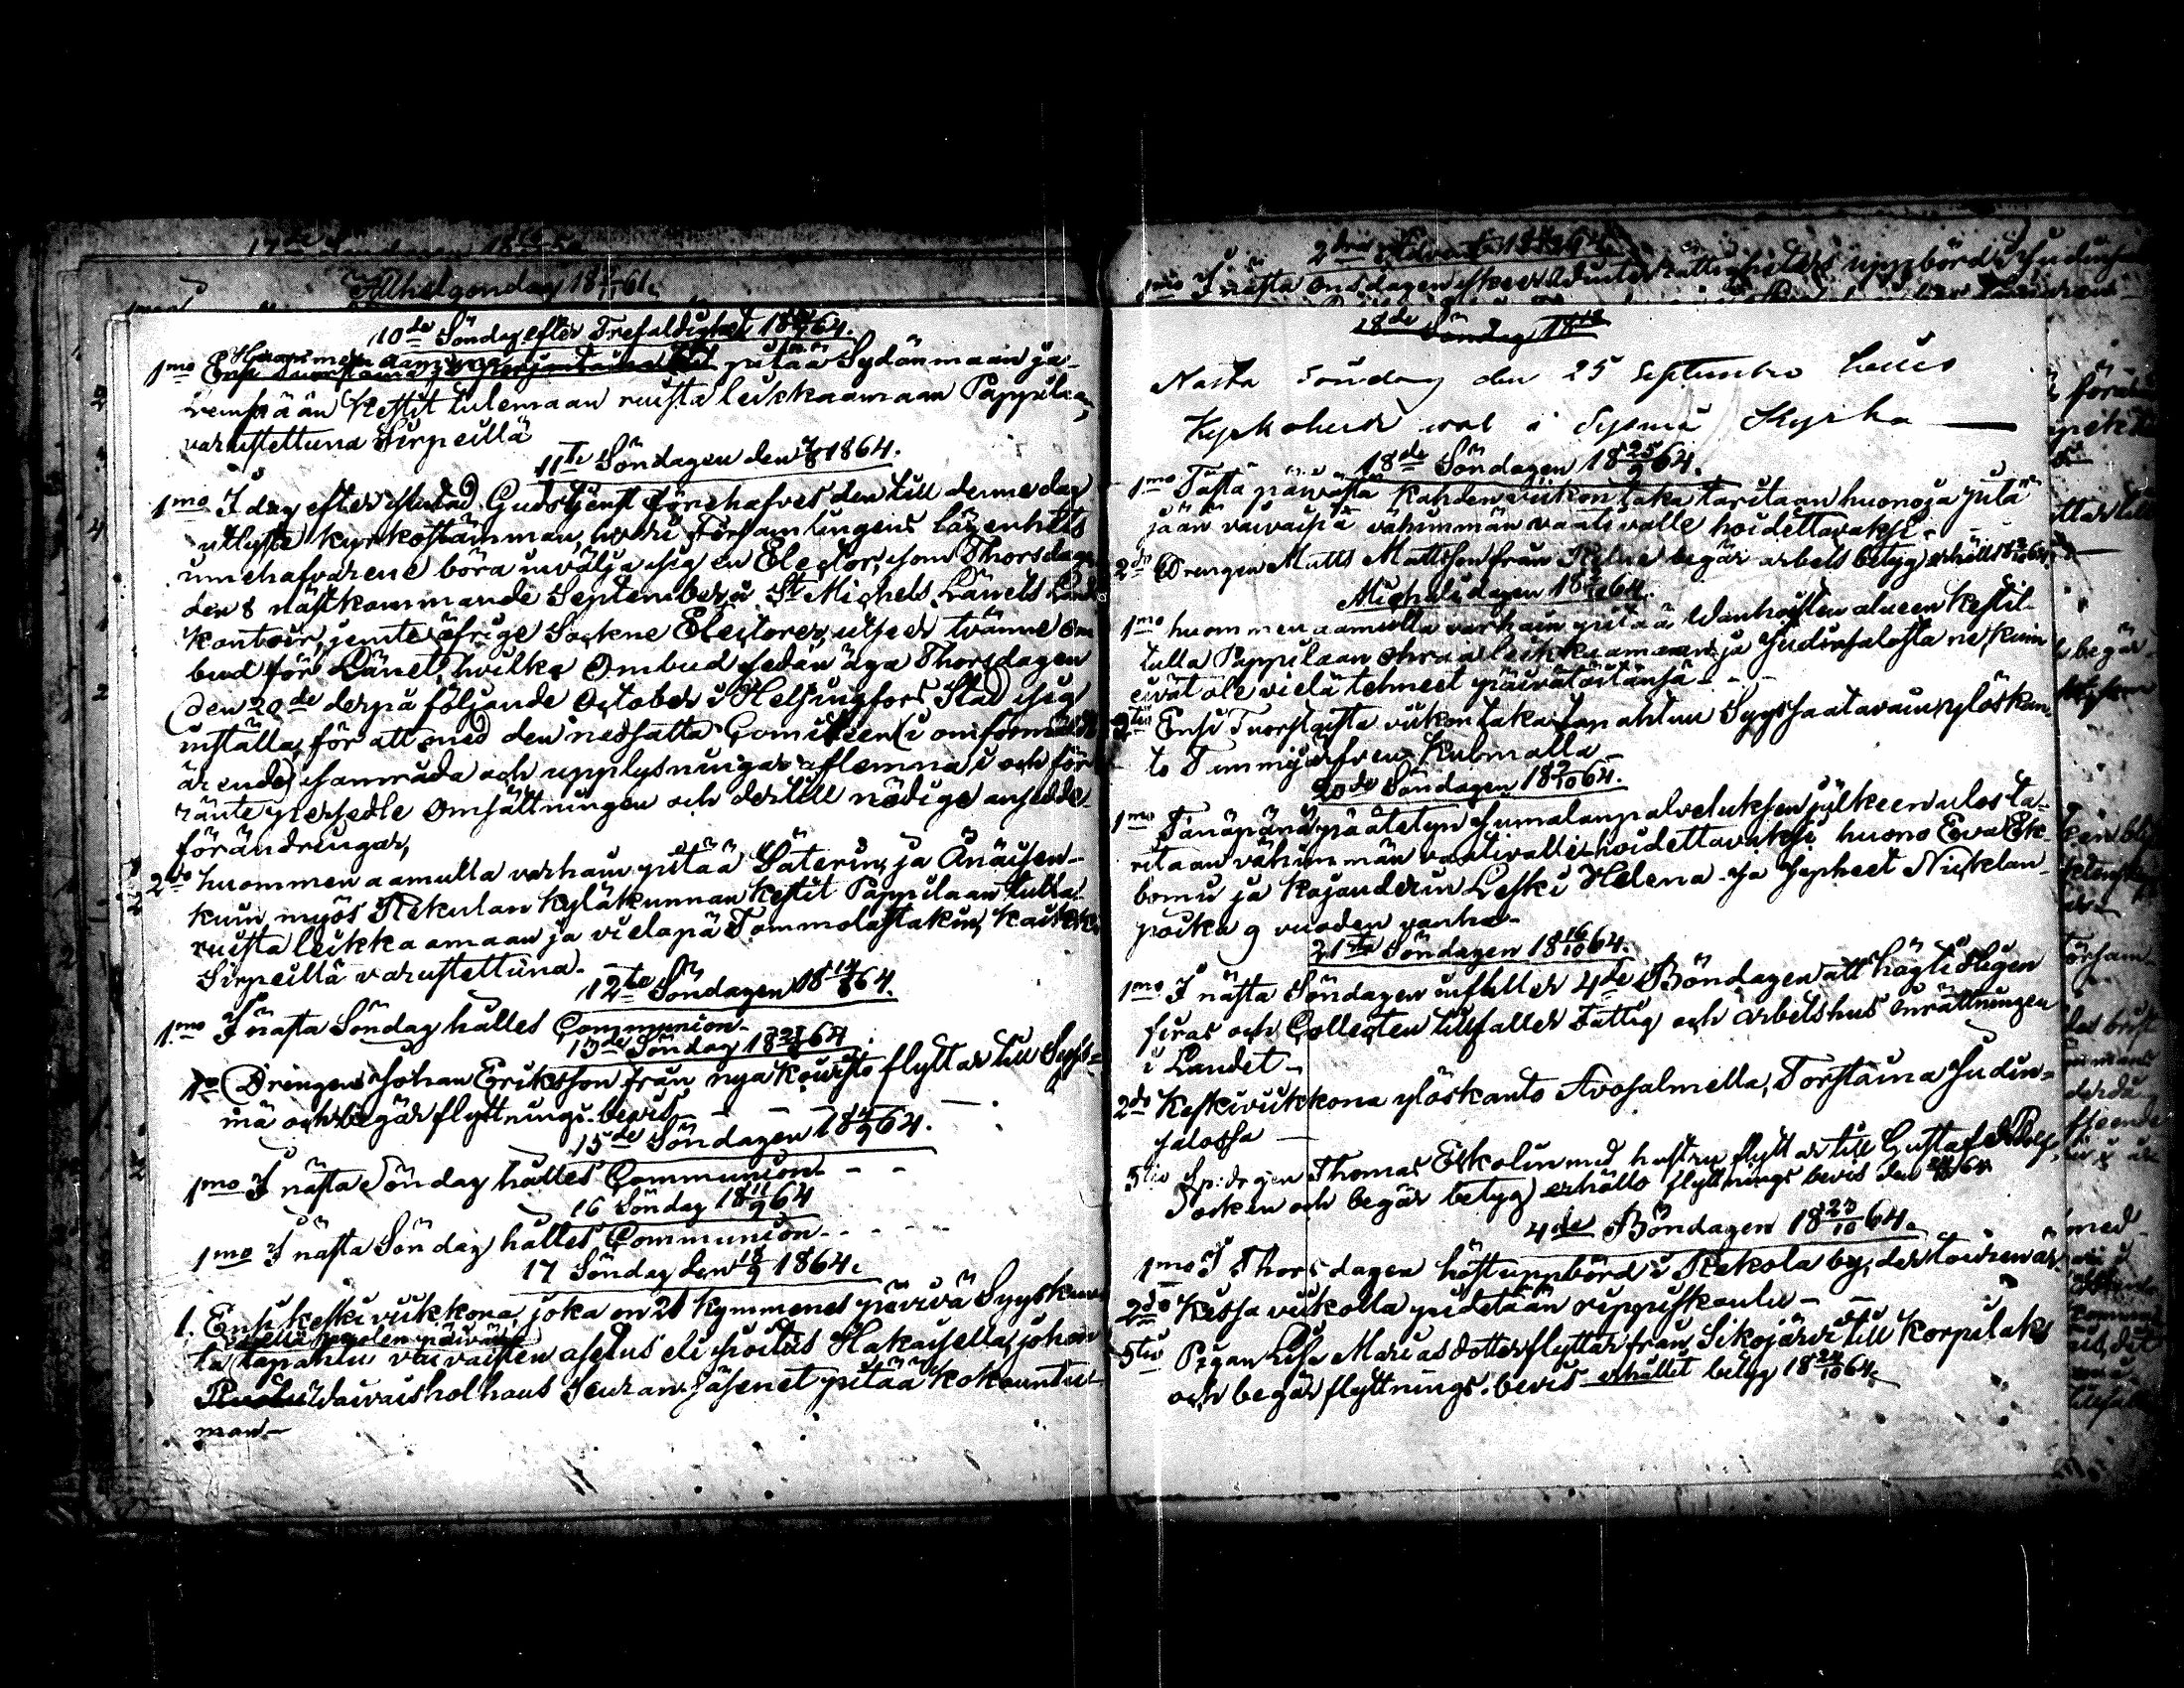 17de Söndagen
Alhelgondag 18 5/11 61.
10de Söndag efter Trefaldighet 18 31/7 64.
1mo Huommen aamuna pitää Sydänmaan ja
Kestit tulemaan ruista leikkaamaan Pappilaan
varustettuna Sirpeillä
11te Söndagen den 7/8 1864.
1mo I dag efter slutad Gudstjenst förehafves den till denne dag
utlyste kyrkostämman, hvari Församlingens lägenhets
innehafvarene böra invälja sig en Elector, som Thorsdagen
den 8 nästkommande September å St Michels Länets Lands
kontoir, jemte öfrige Sockne Electorer, utse tvänne Om
bud för Länet, hvilka Ombud sedan äga Thorsdagen
den 20de derpå följande October i Helsingfors Stad sig
inställa, för att med den nedsatta Comiteen (i omförmäldt
ärende) samråda och upplysningar aflemna i och för
ränte persedle Omsättningen och dertill nödige ansedde
förändringar,
2do huommen aamulla varhain pitää Säterin, ja Önäisen-
kuin myös Rekulan kyläkunnan Kestit Pappilaan tulla
ruista leikkaamaan ja vieläpä Tommolastakin, kaikki
Sirpeillä varustettuna. -
12te Söndagen 18 14/8 64.
1mo I nästa Söndag hålles Communion -
13de Söndag 18 21/8 64.
1mo Drengen Johan Eriksson från nya Kouisto flyttar till Sys=
mä och begär flyttnings bevis - - -
15de Söndagen 18 4/9 64.
1mo I nästa Söndag hålles Communion - - -
16 Söndag 18 11/9 64
1mo I nästa Söndag hålles Communion - -
17 Söndag den 18/9 1864.
1. Ensi keskiviikkona, joka on 21 Kymmenes päivä Syyskuu
tällä päivä
ta tapahtu vaivaisten asetus eli hoitus Hakaisella, johon
Vaivaisholhous Seuran jäsenet pitää kokountu-
man -
2dra Advent 18
1mo I nästa onsdagen uppbörd
18de Söndag 18
Nästa Söndag den 25 September hålles
Kyrkoherde val i Sysmä Kyrka
18de Söndagen 18 25/9 64.
1mo Tästä päivästä kahden viikon taka taritaan huonoja pitä
jään vaivaisia vähimmän vaativalle hoidettavaksi -
2do Drengen Matts Mattsson från begär arbets betyg erhållt 18 2/10 64.
Michelidagen 18 64.
1mo huommen aamulla varhain pitää Wanhosten alueen Kestit
tulla Pappilaan ohraa leikkaamaan ja Judinsalosta ne, kuin
eivät ole vielä tehneet päivätöitänsä - - -
2do Ensi Tuorstaista viikon takaa tapahtuu Syyssaatavain ylöskan-
to Tommijärven Kulmalla -
20de Söndagen 18 9/10 64.
1mo Tänäpänä päätetyn Jumalanpalveluksen jälkeen ulos ta-
ritaan vähimmän vaativalle hoidettavaksi huono Ewa Ek-
bomi ja Kajanderin Leski Helena ja Japheet Niskelan
poika 9 vuoden vanha -
21sta Söndagen 18 16/10 64.
1mo I nästa Söndagen infaller 4de Böndagen att högtideligen
firas och Collecten tillfaller Fattig och arbetshus Inrättningen
i Landet -
2do Keskiviikkona ylöskanto Avosalmella, Torstaina Judin=
salossa -
3tio Sp: drgen Thomas Eskolin med hustru flyttar till Gustaf Adolfs
Socken och begär betyg erhållo flyttnings bevis den 64.
4de Böndagen 18 23/10 64.
1mo I Thorsdagen höstuppbörd i Rekola by, der toiren är
2do Kessa viikolla pidetään rippiskoulu - -
3tio Pigan Lisa Mariasdotter flyttar från Sikojärvi till Korpilaks
och begär flyttnings bevis erhållet betyg 18 24/10 64.